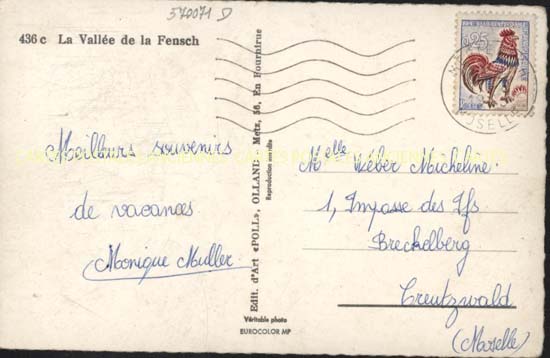 570071 D
436 c La Vallée de la Fensch
0,25
MOSELLE
Meilleurs souvenirs
de vacances
Monique Muller
Edit. d'Art «POLL», OLLAND - Metz, 56, En Fournirue
Reproduction interdite
Melle Wéber Micheline
1, Impasse des Ifs
Breckelberg
Creutzwald
(Moselle)
Véritable photo
EUROCOLOR MP